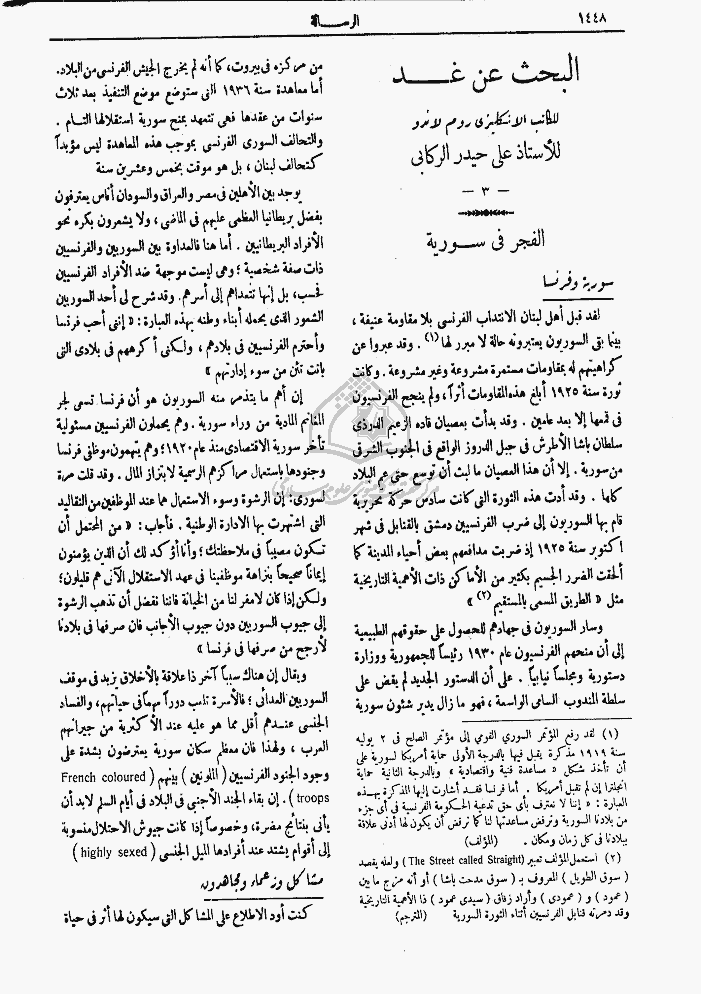 ١٤٤٨
الرســـالة
البحث عن غـــد
للكاتب الانكليزى روم لاندو
للأستاذ على حيدر الركابى
— ٣ —
الفجر فى سـورية
سورية وفرنسا
لقد قبل أهل لبنان الانتداب الفرنسى بلا مقاومة عنيفة ،
بينما بقى السوريون يعتبرونه حالة لا مبرر لها (١) . وقد عبروا عن
كراهيتهم له بمقاومات مستمرة مشروعة وغير مشروعة . وكانت
ثورة سنة ١٩٢٥ أبلغ هذه المقاومات أثراً ، ولم ينجح الفرنسيون
فى قمعها إلا بعد عامين . وقد بدأت بعصيان قاده الزعيم الدرزى
سلطان باشا الأطرش فى جبل الدروز الواقع فى الجنوب الشرقى
من سورية . إلا أن هذا العصيان ما لبث أن توسع حتى عم البلاد
كلها . وقد أدت هذه الثورة التى كانت سادس حركة تحريرية
قام بها السوريون إلى ضرب الفرنسيين دمشق بالقنابل فى شهر
اكتوبر سنة ١٩٢٥ إذ ضربت مدافعهم بعض أحياء المدينة كما
ألحقت الضرر الجسيم بكثير من الأماكن ذات الأهمية التاريخية
مثل « الطريق المسمى بالمستقيم (٢) »
وسار السوريون فى جهادهم للحصول على حقوقهم الطبيعية
إلى أن منحهم الفرنسيون عام ١٩٣٠ رئيساً للجمهورية ووزارة
دستورية ومجلساً نيابياً . على أن الدستور الجديد لم يقض على
سلطة المندوب السامى الواسعة ، فهو ما زال يدير شئون سورية
(١) لقد رفع المؤتمر السورى القومى إلى مؤتمر الصلح فى ٢ يوليه
سنة ١٩١٩ مذكرة يقبل فيها بالدرجة الأولى حماية أمريكا لسورية على
أن تأخذ شكل « مساعدة فنية واقتصادية » وبالدرجة الثانية حماية
انجلترا إن لم تقبل أمريكا . أما فرنسا فقد أشارت إليها المذكرة بهذه
العبارة : « إننا لا نعترف بأى حق تدعيه الحكومة الفرنسية فى أى جزء
من بلادنا السورية ونرفض مساعدتها لنا كما نرفض أن يكون لها أدنى علاقة
ببلادنا فى كل زمان ومكان . (المؤلف)
(٢) استعمل المؤلف تعبير (The Street called Straight) ولعله يقصد
( سوق الطويل ) المعروف بـ ( سوق مدحت باشا ) أو أنه مزج ما بين
( عمود ) و ( عمودى ) وأراد زقاق ( سيدى عمود ) ذا الأهمية التاريخية
وقد دمرته قنابل الفرنسيين أثناء الثورة السورية (المترجم)
من مركزه فى بيروت، كما أنه لم يخرج الجيش الفرنسى من البلاد.
أما معاهدة سنة ١٩٣٦ التى ستوضع موضع التنفيذ بعد ثلاث
سنوات من عقدها فهى تتعهد بمنح سورية استقلالها التـام .
والتحالف السورى الفرنسى بموجب هذه المعاهدة ليس مؤبداً
كتحالف لبنان ، بل هو موقت بخمس وعشرين سنة
يوجد بين الأهلين فى مصر والعراق والسودان أناس يعترفون
بفضل بريطانيا العظمى عليهم فى الماضى ، ولا يشعرون بكره نحو
الأفراد البريطانيين . أما هنا فالعداوة بين السوريين والفرنسيين
ذات صفة شخصية ؛ وهى ليست موجهة ضد الأفراد الفرنسيين
فحسب، بل إنها تتعداهم إلى أسرهم. وقد شرح لى أحد السوريين
الشعور الذى يحمله أبناء وطنه بهذه العبارة: « إننى أحب فرنسا
وأحترم الفرنسيين فى بلادهم ، ولكنى أكرههم فى بلادى التى
باتت تئن من سوء إدارتهم »
إن أهم ما يتذمر منه السوريون هو أن فرنسا تسعى لجر
المغانم المادية من وراء سورية . وهم يحملون الفرنسيين مسئولية
تأخر سورية الاقتصادى منذ عام ١٩٢٠؛ وهم يتهمون موظفى فرنسا
وجنودها باستعمال مراكزهم الرسمية لابتزاز المال . وقد قلت مرة
لسورى: إن الرشوة وسوء الاستعمال هما عند الموظفين من التقاليد
التى اشتهرت بها الادارة الوطنية . فأجاب: « من المحتمل أن
تـكون مصيباً فى ملاحظتك ؛ وأنا أؤكد لك أن الذين يؤمنون
إيماناً صحيحاً بنزاهة موظفينا فى عهد الاستقلال الآتى هم قليلون؛
ولكن إذا كان لا مفر لنا من الخيانة فاننا نفضل أن تذهب الرشوة
إلى جيوب السوريين دون جيوب الأجانب فان صرفها فى بلادنا
لأرجح من صرفها فى فرنسا »
ويقال إن هناك سبباً آخر ذا علاقة بالأخلاق يزيد فى موقف
السوريين العدائى ؛ فالأسرة تلعب دوراً مهماً فى حياتهم، والفساد
الجنسى عندهم أقل مما هو عليه عند الأكثرية من جيرانهم
العرب ، ولهذا فان معظم سكان سورية يعترضون بشدة على
وجود الجنود الفرنسيين ( الملونين ) بينهم ( French coloured
troops ). إن بقاء الجند الأجنبى فى البلاد فى أيام السلم لابد أن
يأتى بنتائج مضرة، وخصوصاً إذا كانت جيوش الاحتلال منسوبة
إلى أقوام يشتد عند أفرادها الميل الجنسى ( highly sexed )
مشاكل وزعماء ومجاهدون
كنت أود الاطلاع على المشاكل التى سيكون لها أثر فى حياة